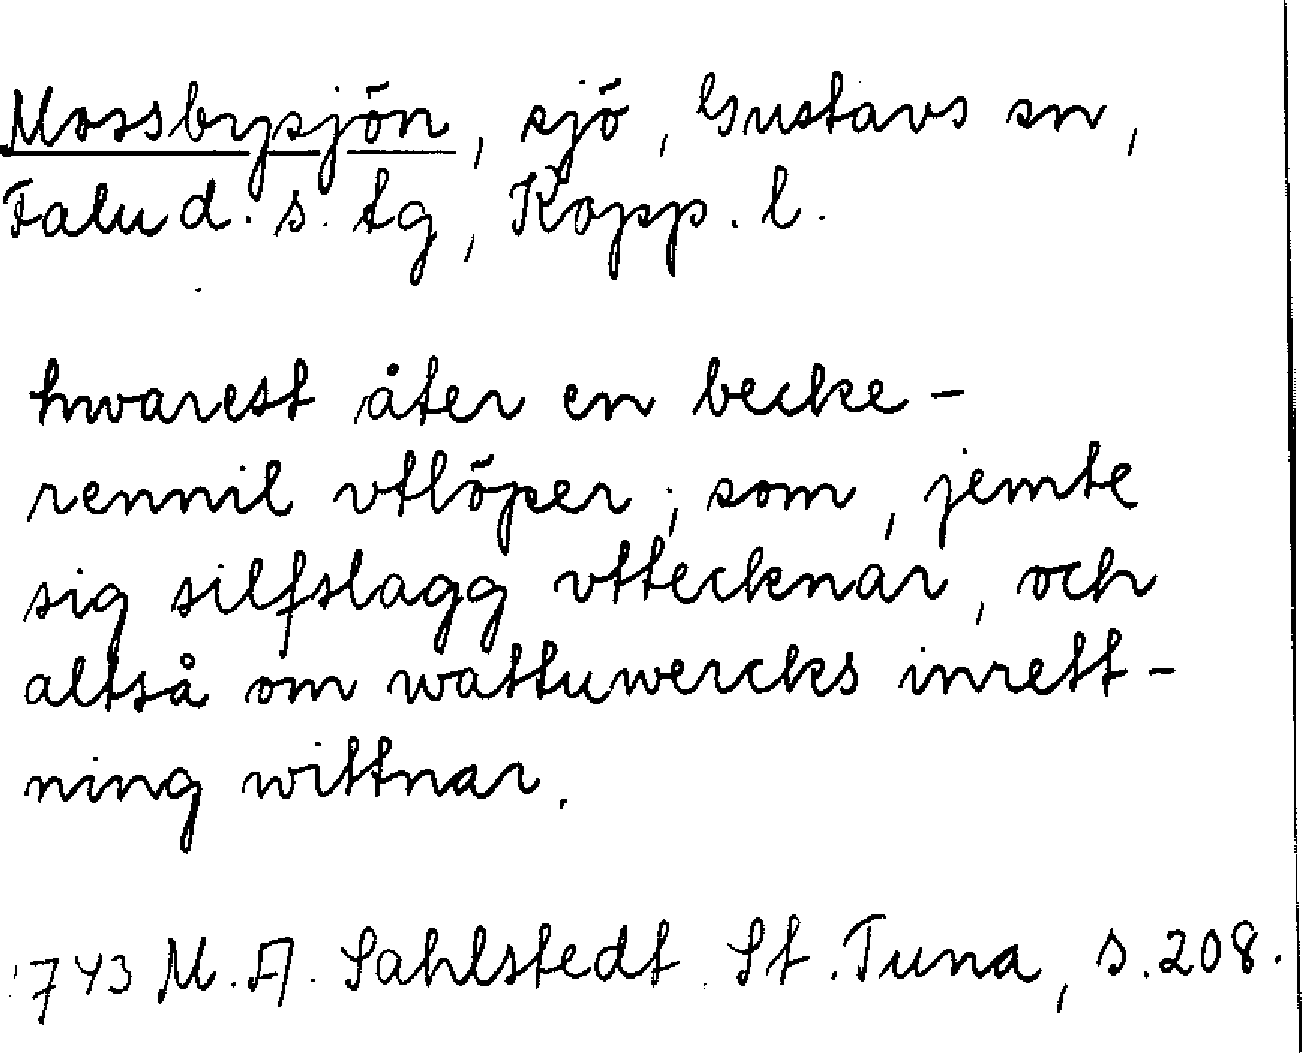 Mossbysjön, sjö, Gustavs sn,
Falu d. s. tg, Kopp. l.
hwarest åter en becke-
rennil vtlöper, som, jemte
sig silfslagg vttecknar, och
altså om wattuwercks inrett-
ning wittnar.
1743 M. A. Sahlstedt. St. Tuna, s. 208.